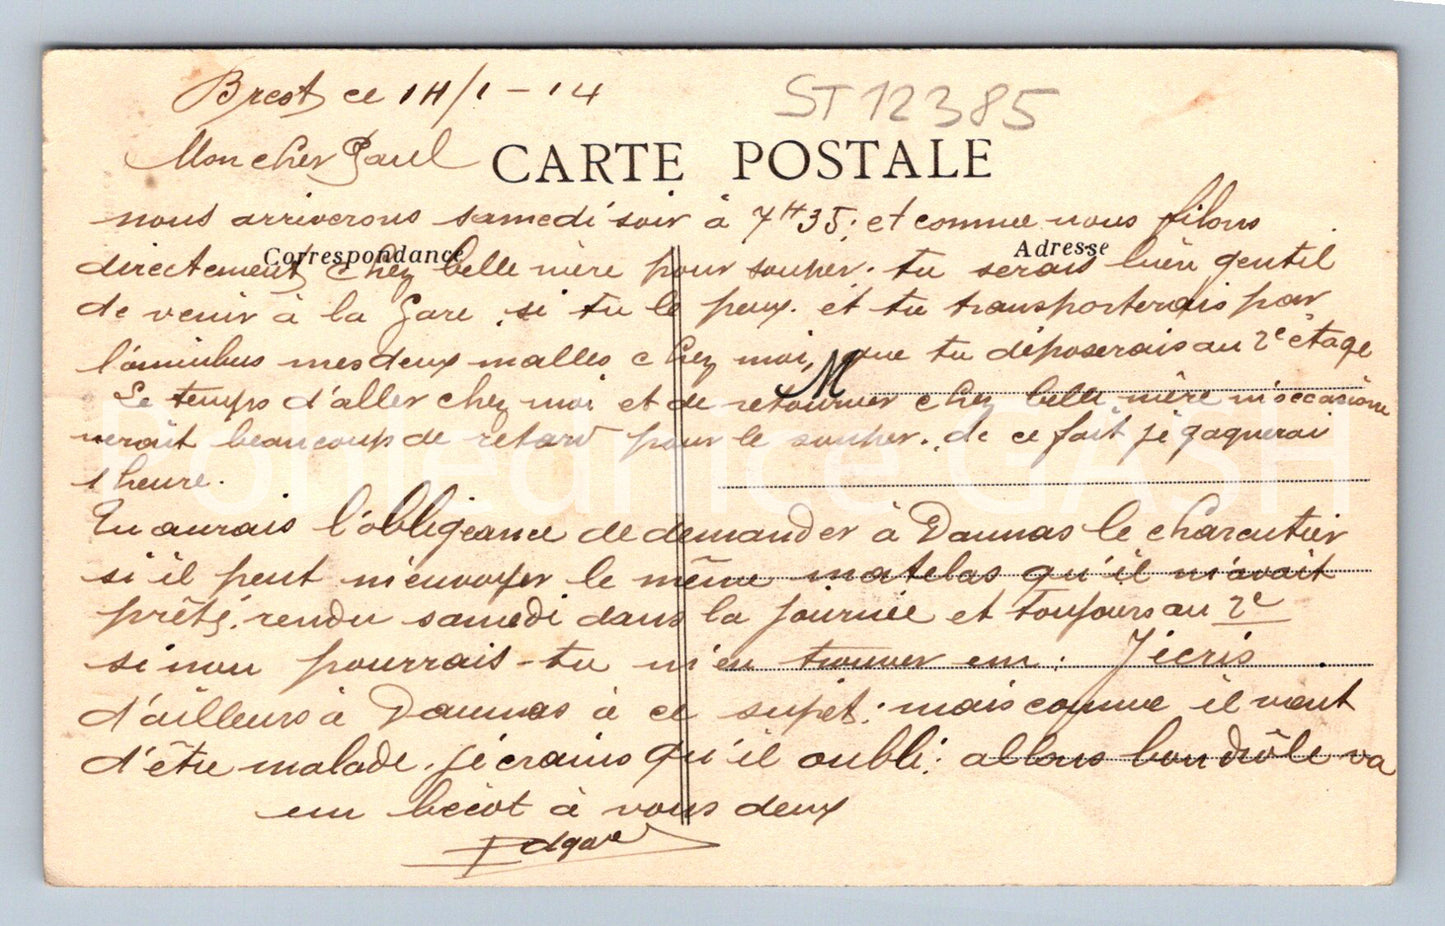 Brest ce 14/1-14
ST12385
Mon cher Paul
CARTE POSTALE
nous arriverons samedi soir à 7H35; et comme nous filons
Correspondance
Adresse
directement chez belle mère pour souper. tu serais bien gentil
de venir à la gare si tu le peux. et tu transporterais par
l'omnibus mes deux malles chez moi, que tu déposerais au 2e étage
M
Le temps d'aller chez moi et de retourner chez belle mère m'occasion
nerait beaucoup de retard pour le souper. de ce fait je gagnerai
1 heure.
Tu aurais l'obligeance de demander à Daumas le charcutier
si il peut m'envoyer le même matelas qu'il m'avait
prêté. rendu samedi dans la journée et toujours au 2e
sinon pourrais-tu m'en trouver un. J'écris
d'ailleurs à Daumas à ce sujet: mais comme il vient
d'être malade. je crains qu'il oubli: allons bon drôle va
un bécot à vous deux
Edgar
Pohlednice GASH